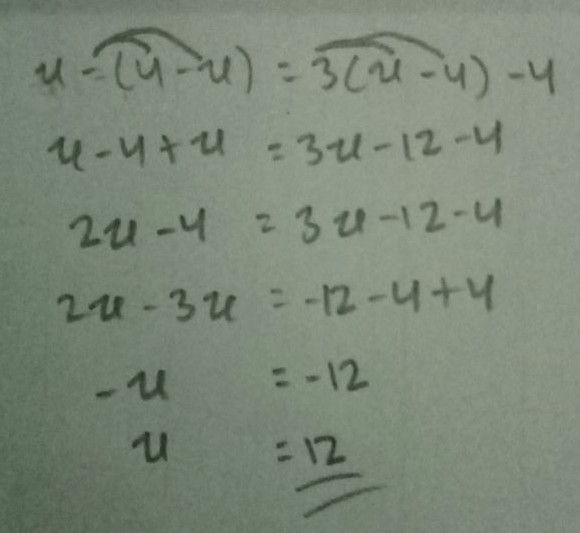 u - (4 - u) = 3(u - 4) - 4
u - 4 + u = 3u - 12 - 4
2u - 4 = 3u - 12 - 4
2u - 3u = -12 - 4 + 4
-u = -12
u = 12